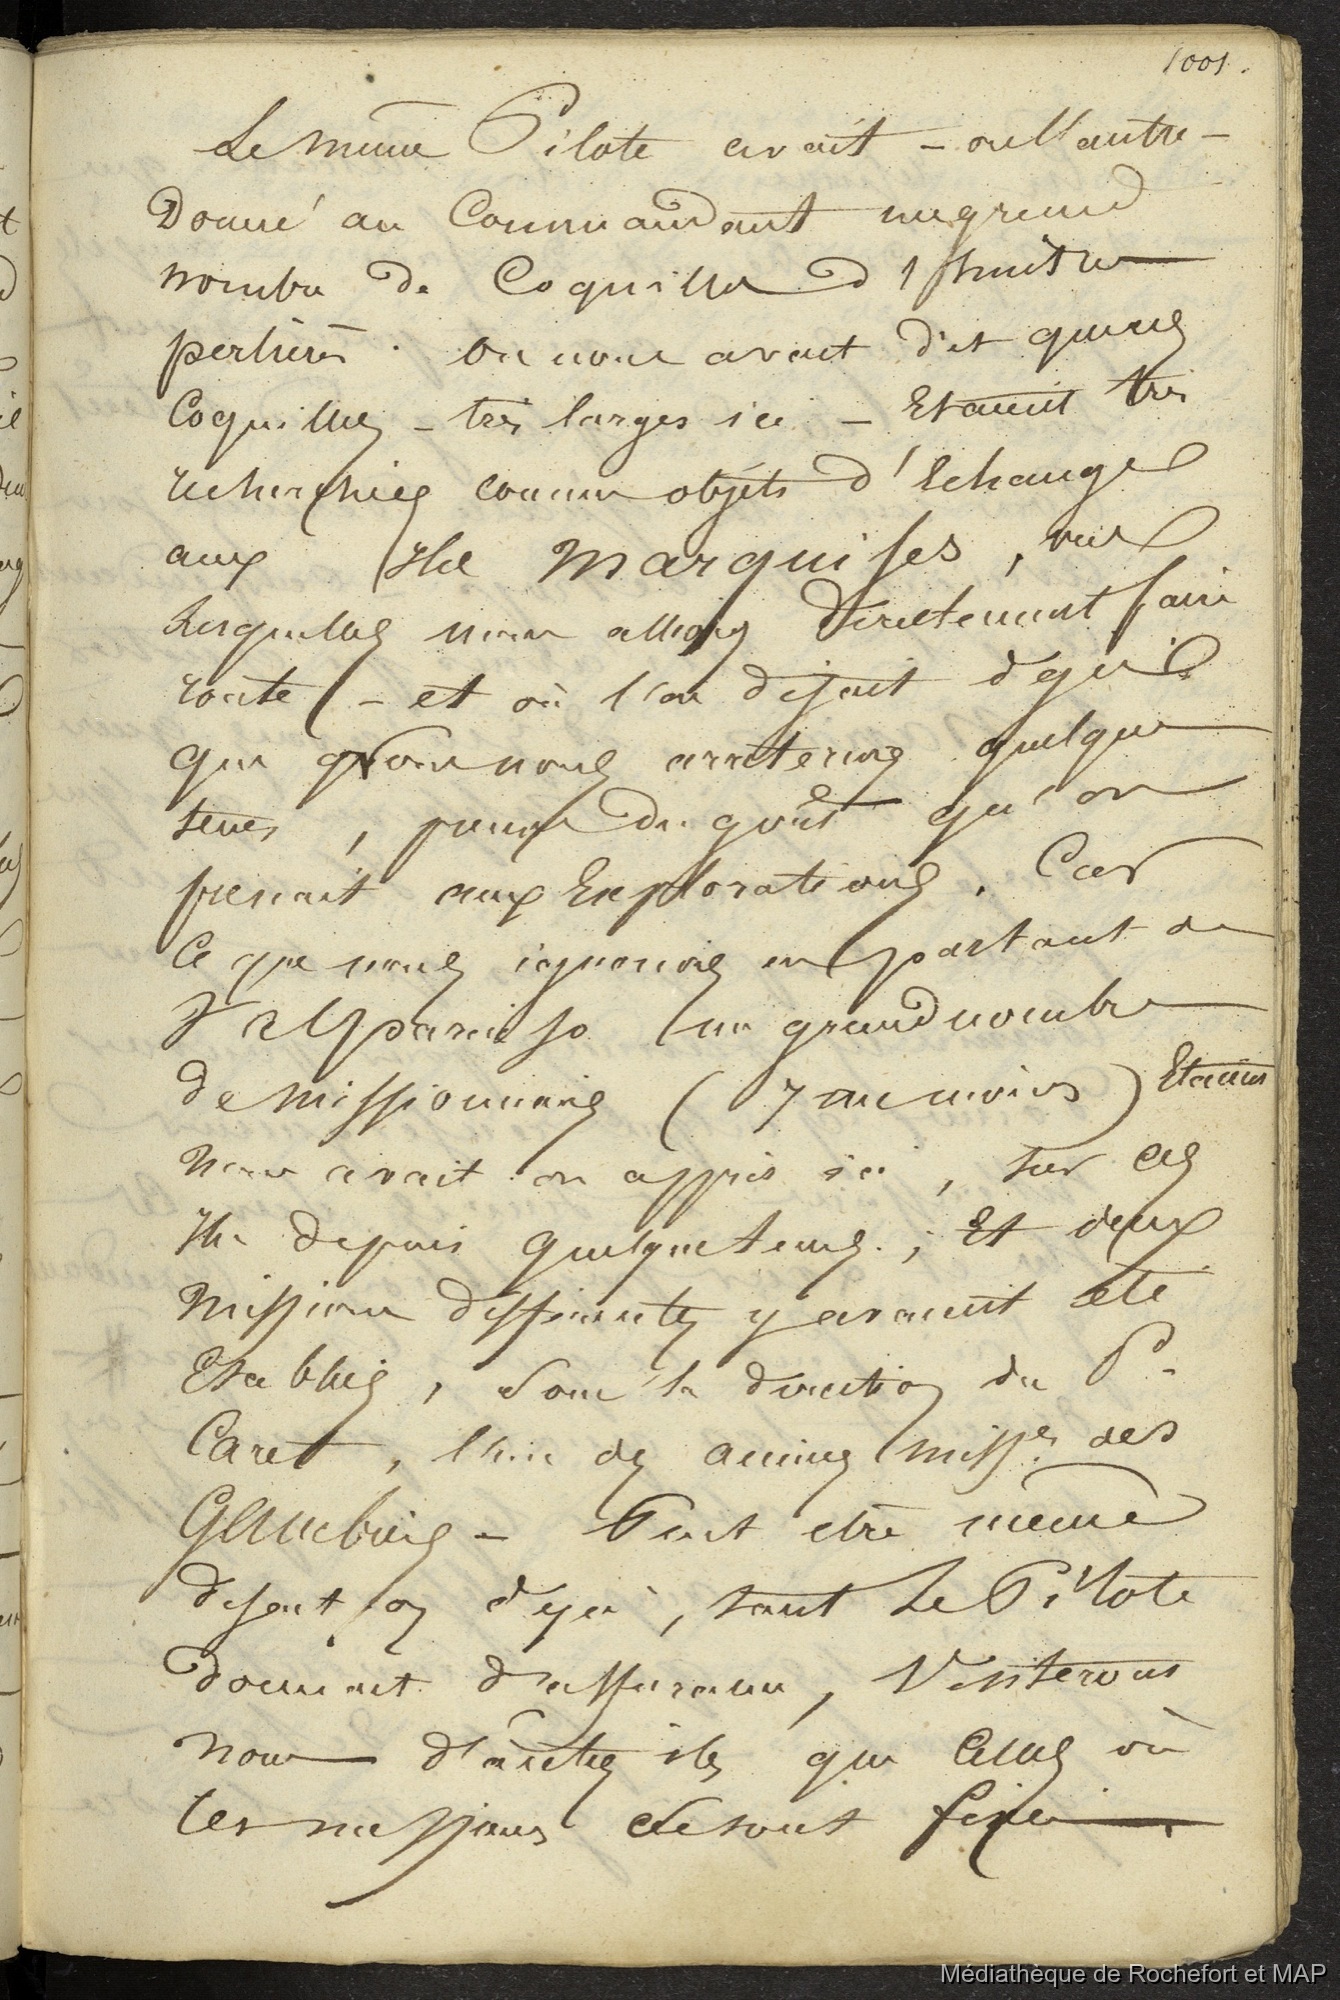 1001.
Le même Pilote avait – outre –
Donné au Commandant un grand
nombre de Coquilles d'huitres
perlières. On nous avait dit que ces
Coquilles – très larges ici – Etaient très
recherchées comme objets d'Echange
aux Iles Marquises, vers
lesquelles nous allions directement faire
route – et où l'on disait déjà
que nous nous arrêterions quelque
tems, pour du goût qu'on
prenait aux Explorations. Car
Ce que nous ignorions en partant de
Valparaiso un grand nombre
de missionnaires (7 au moins) Etaient
nous avait on appris ici, sur ces
Iles depuis quelque tems; Et deux
missions différentes y avaient été
Etablies, sous la direction du P.
Caret, l'un des anciens miss.res des
Gambiers – Peut être même
disait on déjà, tant le Pilote
donnait d'assurance, Visiterons
nous d'autres iles que celles où
les missions se sont fixées.
Médiathèque de Rochefort et MAP